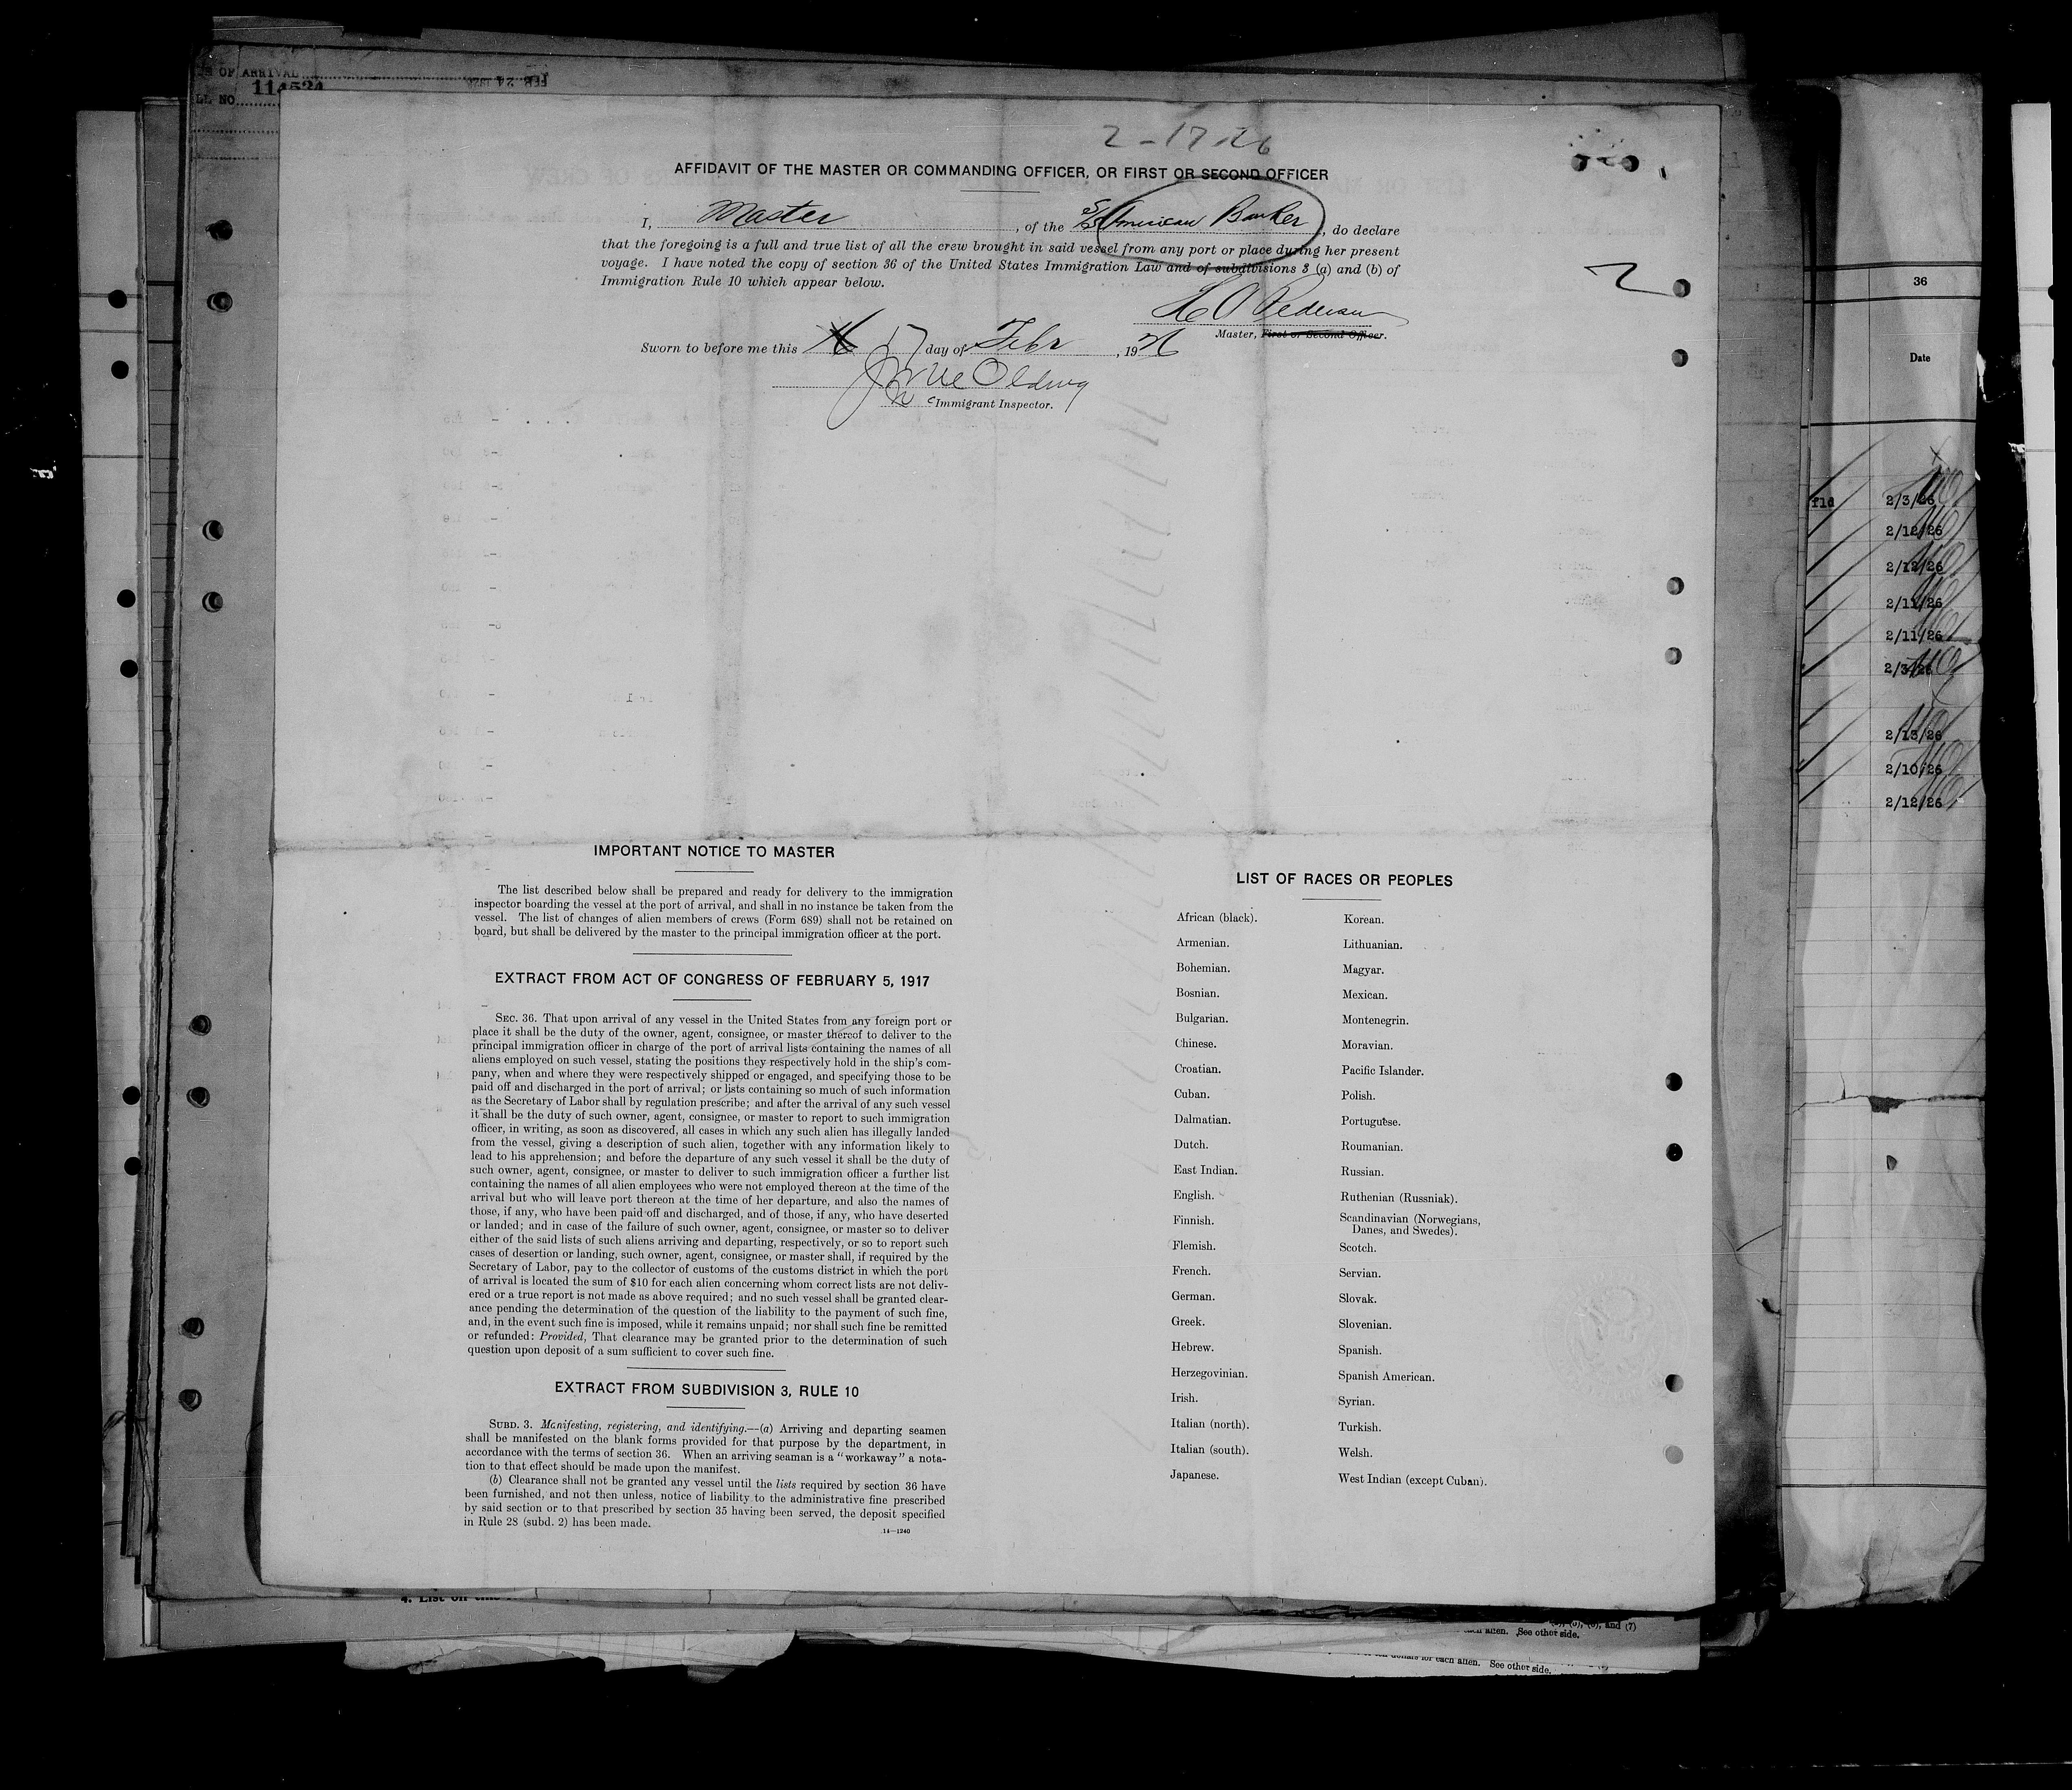 OF ARRIVAL
LL NO. 114524
FEB 24 192
2-17-26
AFFIDAVIT OF THE MASTER OR COMMANDING OFFICER, OR FIRST OR SECOND OFFICER
I, Master, of the S/S American Banker, do declare
that the foregoing is a full and true list of all the crew brought in said vessel from any port or place during her present
voyage. I have noted the copy of section 36 of the United States Immigration Law and of subdivisions 3 (a) and (b) of
Immigration Rule 10 which appear below.
2
H A Pedersen
Master, First or Second Officer.
Sworn to before me this 17 day of Febr, 1926
Immigrant Inspector.
IMPORTANT NOTICE TO MASTER
The list described below shall be prepared and ready for delivery to the immigration
inspector boarding the vessel at the port of arrival, and shall in no instance be taken from the
vessel. The list of changes of alien members of crews (Form 689) shall not be retained on
board, but shall be delivered by the master to the principal immigration officer at the port.
EXTRACT FROM ACT OF CONGRESS OF FEBRUARY 5, 1917
SEC. 36. That upon arrival of any vessel in the United States from any foreign port or
place it shall be the duty of the owner, agent, consignee, or master thereof to deliver to the
principal immigration officer in charge of the port of arrival lists containing the names of all
aliens employed on such vessel, stating the positions they respectively hold in the ship's com-
pany, when and where they were respectively shipped or engaged, and specifying those to be
paid off and discharged in the port of arrival; or lists containing so much of such information
as the Secretary of Labor shall by regulation prescribe; and after the arrival of any such vessel
it shall be the duty of such owner, agent, consignee, or master to report to such immigration
officer, in writing, as soon as discovered, all cases in which any such alien has illegally landed
from the vessel, giving a description of such alien, together with any information likely to
lead to his apprehension; and before the departure of any such vessel it shall be the duty of
such owner, agent, consignee, or master to deliver to such immigration officer a further list
containing the names of all alien employees who were not employed thereon at the time of the
arrival but who will leave port thereon at the time of her departure, and also the names of
those, if any, who have been paid off and discharged, and of those, if any, who have deserted
or landed; and in case of the failure of such owner, agent, consignee, or master so to deliver
either of the said lists of such aliens arriving and departing, respectively, or so to report such
cases of desertion or landing, such owner, agent, consignee, or master shall, if required by the
Secretary of Labor, pay to the collector of customs of the customs district in which the port
of arrival is located the sum of $10 for each alien concerning whom correct lists are not deliv-
ered or a true report is not made as above required; and no such vessel shall be granted clear-
ance pending the determination of the question of the liability to the payment of such fine,
and, in the event such fine is imposed, while it remains unpaid; nor shall such fine be remitted
or refunded: Provided, That clearance may be granted prior to the determination of such
question upon deposit of a sum sufficient to cover such fine.
EXTRACT FROM SUBDIVISION 3, RULE 10
SUBD. 3. Manifesting, registering, and identifying.—(a) Arriving and departing seamen
shall be manifested on the blank forms provided for that purpose by the department, in
accordance with the terms of section 36. When an arriving seaman is a "workaway" a nota-
tion to that effect should be made upon the manifest.
(b) Clearance shall not be granted any vessel until the lists required by section 36 have
been furnished, and not then unless, notice of liability to the administrative fine prescribed
by said section or to that prescribed by section 35 having been served, the deposit specified
in Rule 28 (subd. 2) has been made.
14—1240
LIST OF RACES OR PEOPLES
African (black).
Armenian.
Bohemian.
Bosnian.
Bulgarian.
Chinese.
Croatian.
Cuban.
Dalmatian.
Dutch.
East Indian.
English.
Finnish.
Flemish.
French.
German.
Greek.
Hebrew.
Herzegovinian.
Irish.
Italian (north).
Italian (south).
Japanese.
Korean.
Lithuanian.
Magyar.
Mexican.
Montenegrin.
Moravian.
Pacific Islander.
Polish.
Portuguese.
Roumanian.
Russian.
Ruthenian (Russniak).
Scandinavian (Norwegians,
Danes, and Swedes).
Scotch.
Servian.
Slovak.
Slovenian.
Spanish.
Spanish American.
Syrian.
Turkish.
Welsh.
West Indian (except Cuban).
36
Date
fld 2/3/26
2/12/26
2/12/26
2/11/26
2/11/26
2/3/26
2/13/26
2/10/26
2/12/26
4. List on
and (7)
alien. See other side.
for each alien. See other side.